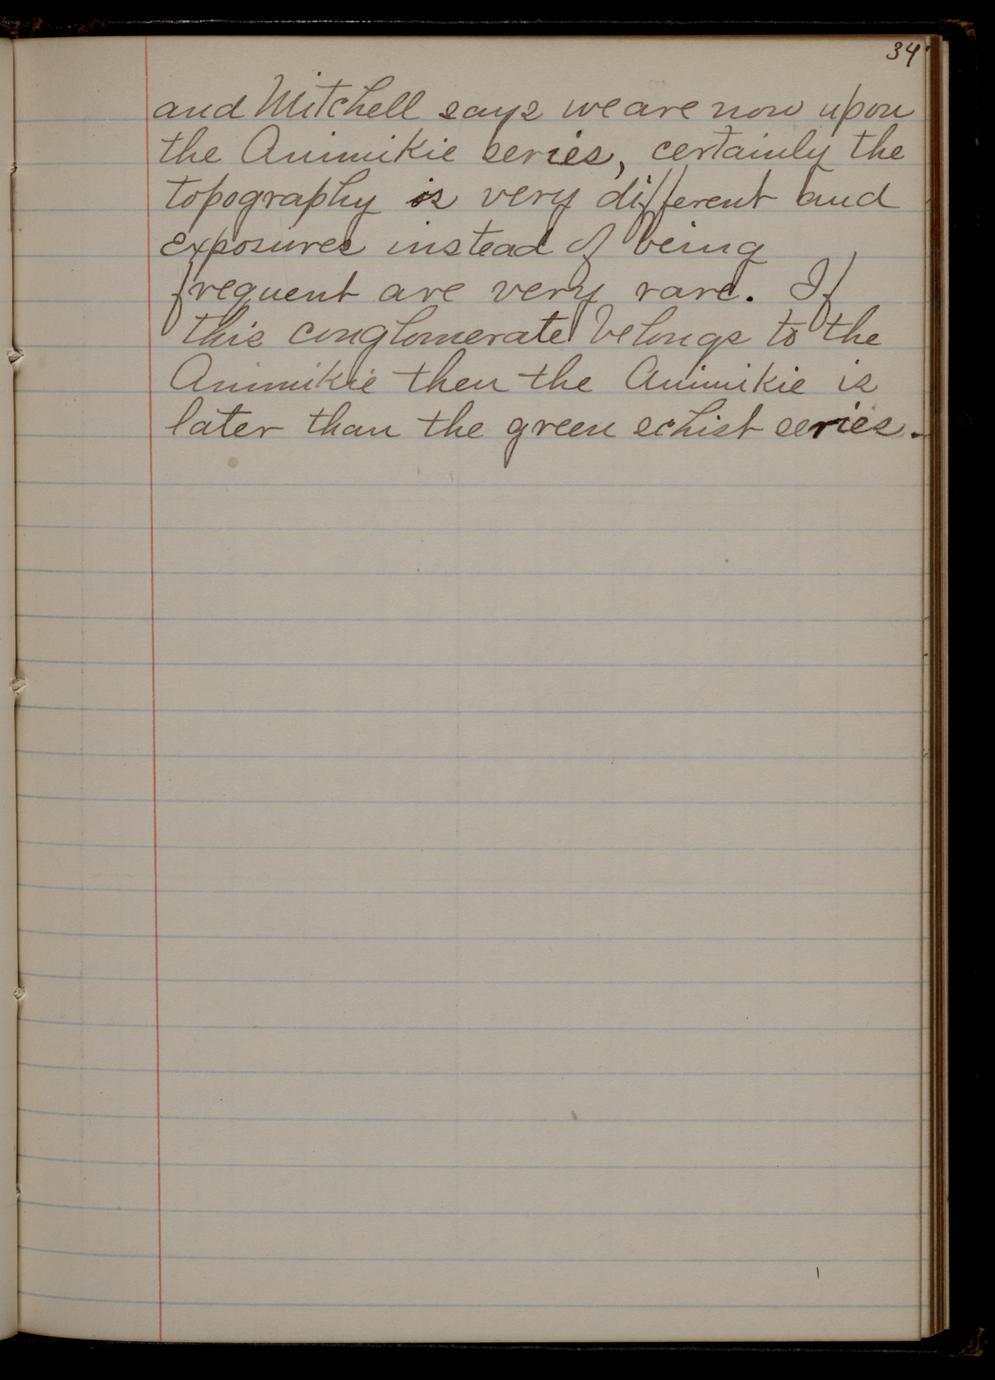 34
and Mitchell says we are now upon
the Animikie series, certainly the
topography is very different and
exposures instead of being
frequent are very rare. If
this conglomerate belongs to the
Animikie then the Animikie is
later than the green schist series.